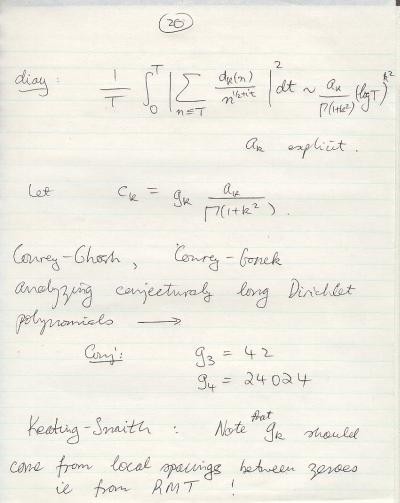 20
diag: 1/T ∫_0^T | ∑_{n≤T} d_k(n)/n^{1/2+it} |^2 dt ~ a_k/Γ(1+k^2) (log T)^{k^2}
a_k explicit.
Let c_k = g_k a_k/Γ(1+k^2).
Conrey-Ghosh, Conrey-Gonek
analyzing conjecturally long Dirichlet
polynomials →
Conj: g_3 = 42
g_4 = 24024
Keating-Snaith: Note that g_k should
come from local spacings between zeroes
ie from RMT !